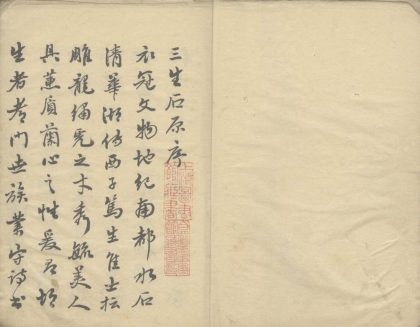 三生石原序
衣冠文物地紀南都水石
清華湖傳西子篤生佳士抎
雕龍繡虎之才秀毓美人
具蕙質蘭心之性爰有
生者者門世族業守詩書